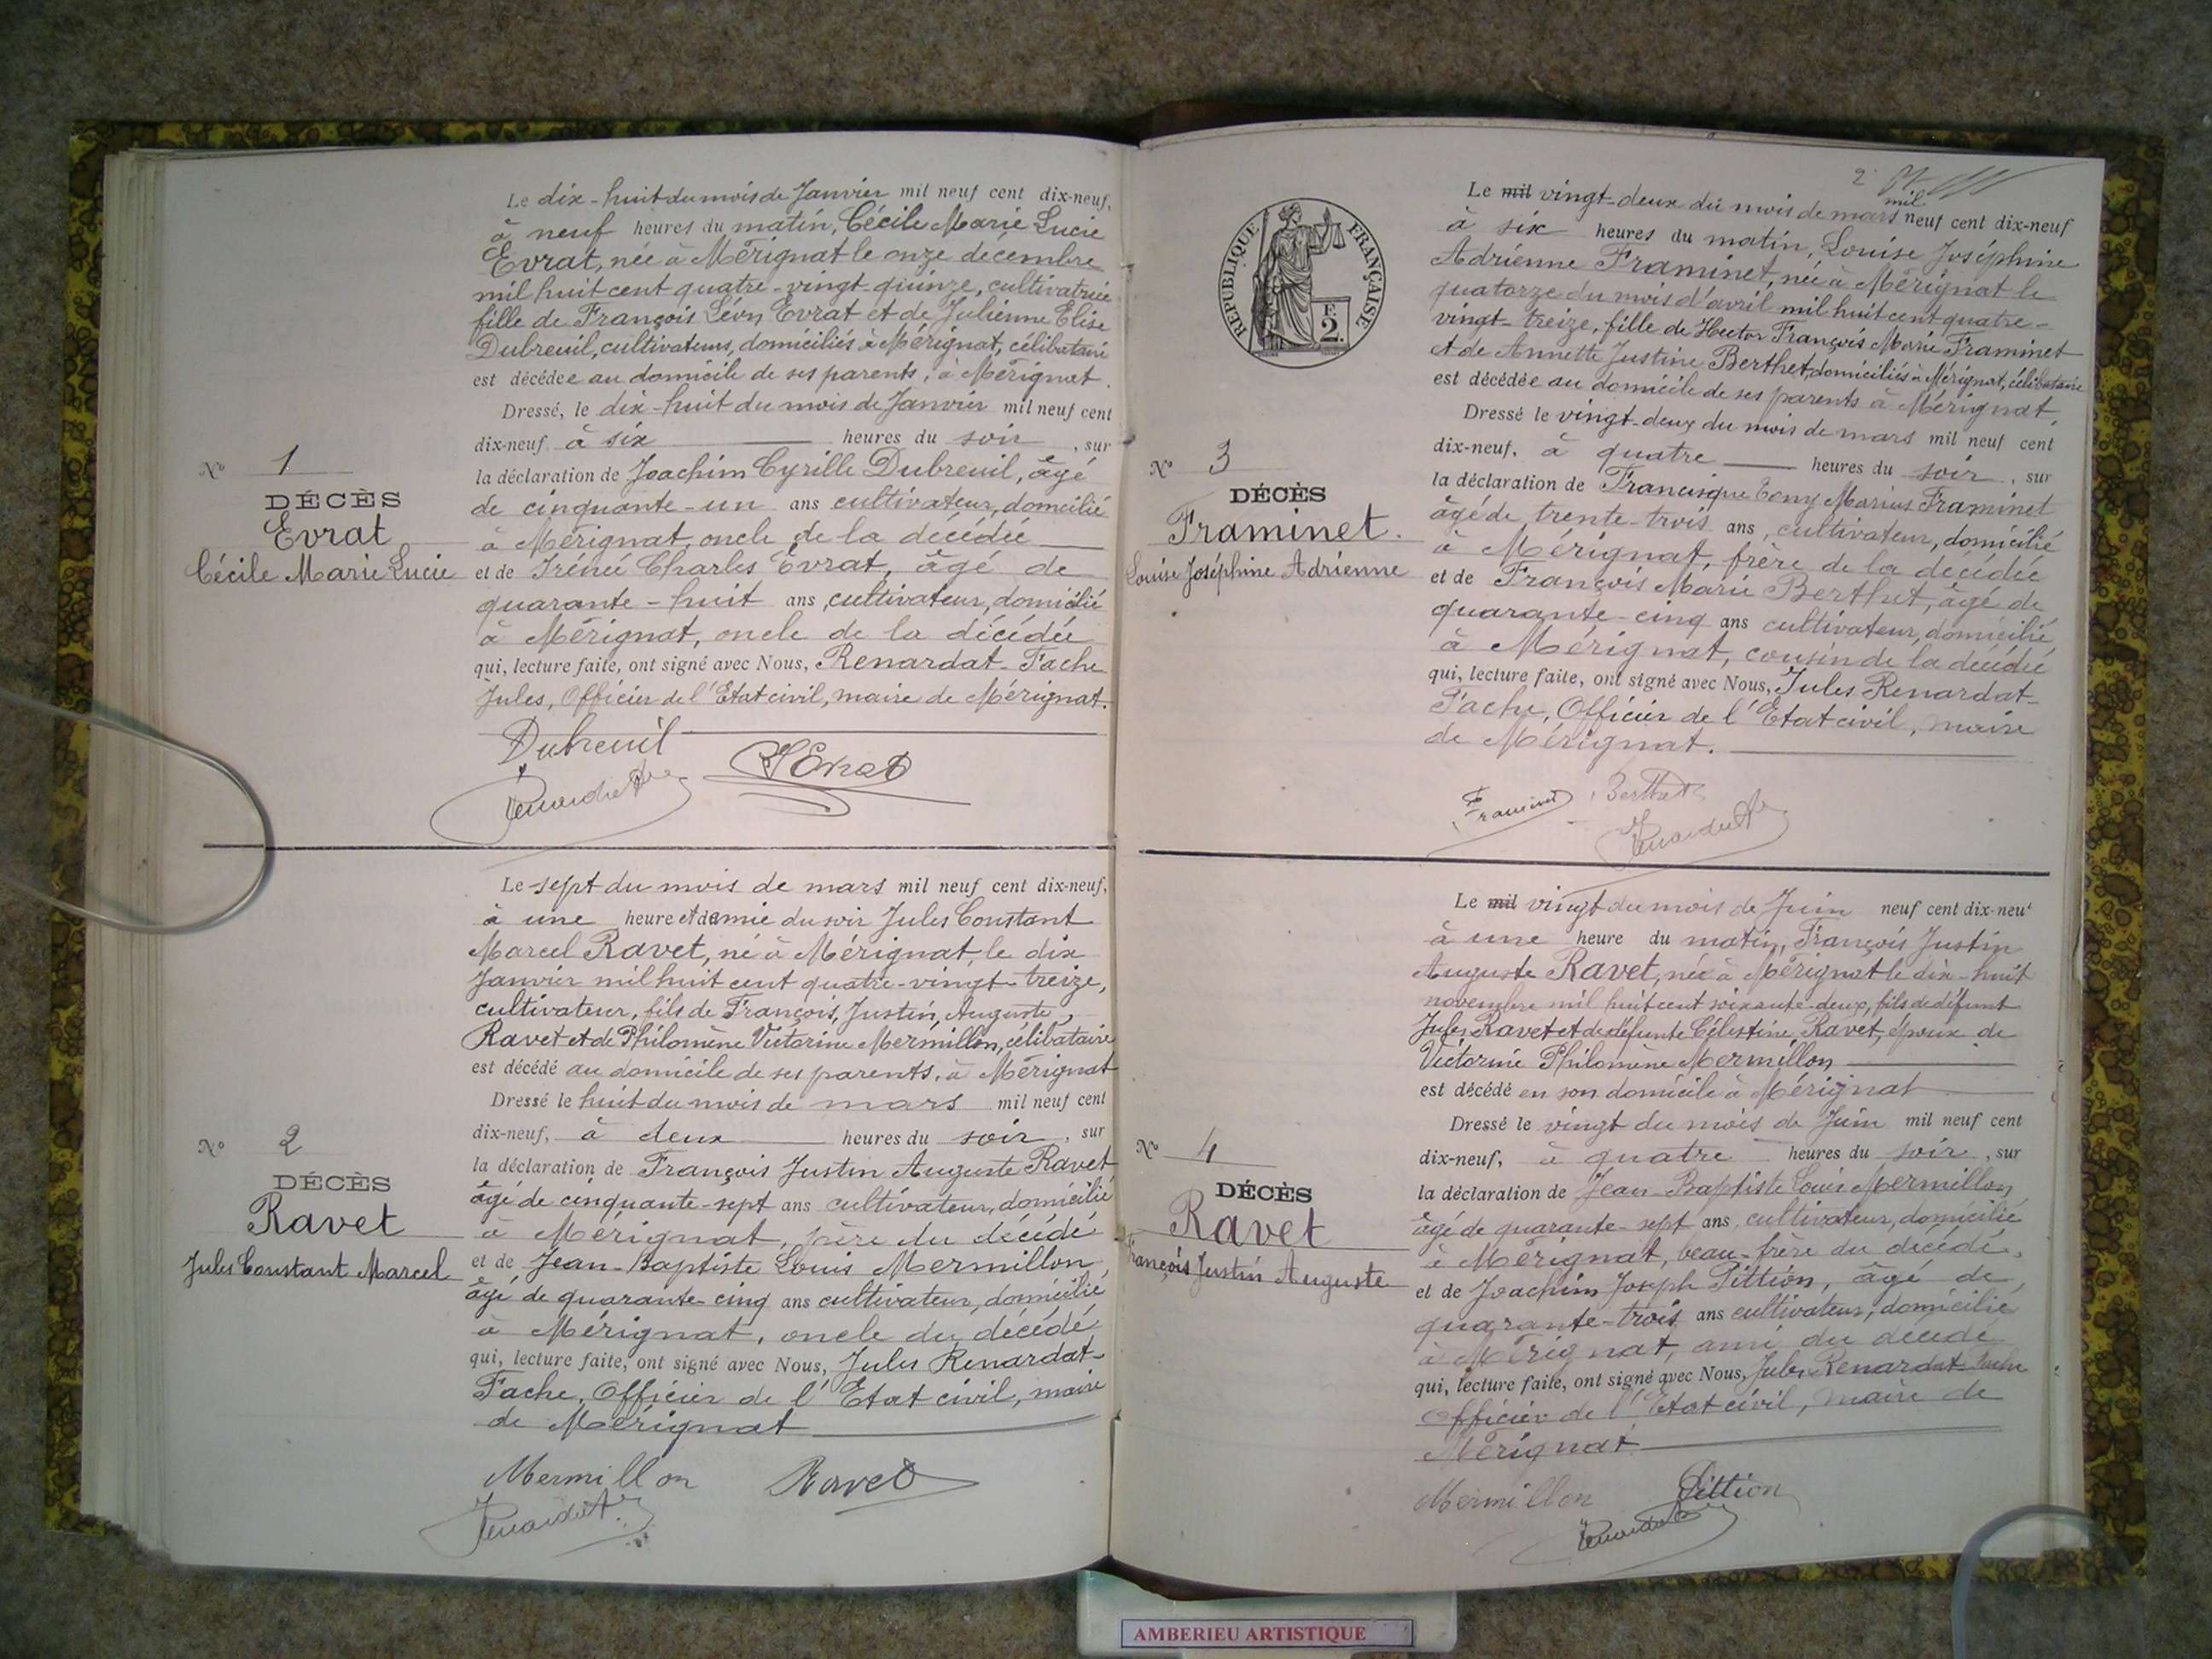 Le dix-huit du mois de Janvier mil neuf cent dix-neuf,
à neuf heures du matin, Cécile Marie Lucie
Evrat, née à Mérignat le onze décembre
mil huit cent quatre-vingt quinze, cultivatrice
fille de François Léon Evrat et de Julienne Elise
Dubreuil, cultivateurs, domiciliés à Mérignat, célibataire
est décédée au domicile de ses parents, à Mérignat.
Dressé, le dix-huit du mois de Janvier mil neuf cent
dix-neuf à six heures du soir, sur
la déclaration de Joachim Cyrille Dubreuil, âgé
de cinquante-un ans cultivateur, domicilié
à Mérignat, oncle de la décédée
et de Irénée Charles Evrat, âgé de
quarante-huit ans, cultivateur, domicilié
à Mérignat, oncle de la décédée
qui, lecture faite, ont signé avec Nous, Renardat-Fache
Jules, Officier de l'Etat civil, maire de Mérignat.
Dubreuil
Evrat
N° 1
DÉCÈS
Evrat
Cécile Marie Lucie
Le sept du mois de mars mil neuf cent dix-neuf,
à une heure et demie du soir Jules Constant
Marcel Ravet, né à Mérignat, le dix
Janvier mil huit cent quatre-vingt-treize,
cultivateur, fils de François, Justin, Auguste,
Ravet et de Philomène Victorine Mermillon, célibataire
est décédé au domicile de ses parents, à Mérignat
Dressé le huit du mois de mars mil neuf cent
dix-neuf, à deux heures du soir, sur
la déclaration de François Justin Auguste Ravet
âgé de cinquante-sept ans cultivateur, domicilié
à Mérignat, père du décédé
et de Jean-Baptiste Louis Mermillon,
âgé de quarante-cinq ans cultivateur, domicilié
à Mérignat, oncle du décédé
qui, lecture faite, ont signé avec Nous, Jules Renardat-
Fache, Officier de l'Etat civil, maire
de Mérignat
Mermillon Ravet
N° 2
DÉCÈS
Ravet
Jules Constant Marcel
2
RÉPUBLIQUE FRANÇAISE
F.
2.
Le mil vingt-deux du mois de mars mil neuf cent dix-neuf
à six heures du matin, Louise Joséphine
Adrienne Framinet, née à Mérignat le
quatorze du mois d'avril mil huit cent quatre-
vingt-treize, fille de Hector François Marie Framinet
et de Annette Justine Berthet, domiciliés à Mérignat, célibataire
est décédée au domicile de ses parents à Mérignat,
Dressé le vingt-deux du mois de mars mil neuf cent
dix-neuf, à quatre heures du soir, sur
la déclaration de Francisque Tony Marius Framinet
âgé de trente-trois ans, cultivateur, domicilié
à Mérignat, frère de la décédée
et de François Marie Berthet, âgé de
quarante-cinq ans cultivateur, domicilié
à Mérignat, cousin de la décédée
qui, lecture faite, ont signé avec Nous, Jules Renardat-
Fache, Officier de l'Etat civil, maire
de Mérignat.
Framinet Berthet
N° 3
DÉCÈS
Framinet.
Louise Joséphine Adrienne
Le mil vingt du mois de Juin neuf cent dix-neuf
à une heure du matin, François Justin
Auguste Ravet, née à Mérignat le dix-huit
novembre mil huit cent soixante-deux, fils de défunt
Jules Ravet et de défunte Célestine Ravet, époux de
Victorine Philomène Mermillon
est décédé en son domicile à Mérignat
Dressé le vingt du mois de Juin mil neuf cent
dix-neuf, à quatre heures du soir, sur
la déclaration de Jean-Baptiste Louis Mermillon,
âgé de quarante-sept ans, cultivateur, domicilié
à Mérignat, beau-frère du décédé,
et de Joachim Joseph Pittion, âgé de
quarante-trois ans cultivateur, domicilié
à Mérignat, ami du décédé
qui, lecture faite, ont signé avec Nous, Jules Renardat-Fache
Officier de l'Etat civil, maire de
Mérignat
Mermillon Pittion
N° 4
DÉCÈS
Ravet
François Justin Auguste
AMBERIEU ARTISTIQUE